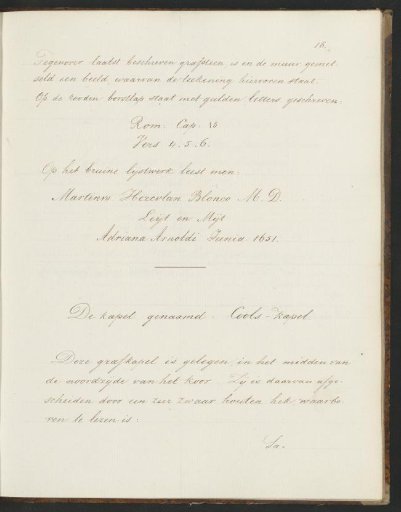 16.
Tegenover laatst beschreven grafsteen is en de muur gemet
seld een beeld waarvan de teekening hiervoren staat.
Op de rooden borstlap staat met gulden letters geschreven.
Rom. Cap.
Vers 4. 5. 6.
Op het bruine lystwerk leest men:
Martinus Blonco M. D.
Leijt en Mijt
Adriana Arnoldi Junia 1651.
De kapel genaamd Cools-kapel
Deze grafkapel is gelegen in het midden van
de noordzyde van het koor. Zy is daarvan afge-
scheiden door een zeer zwaar houten hek waarbo
ven te lezen is: